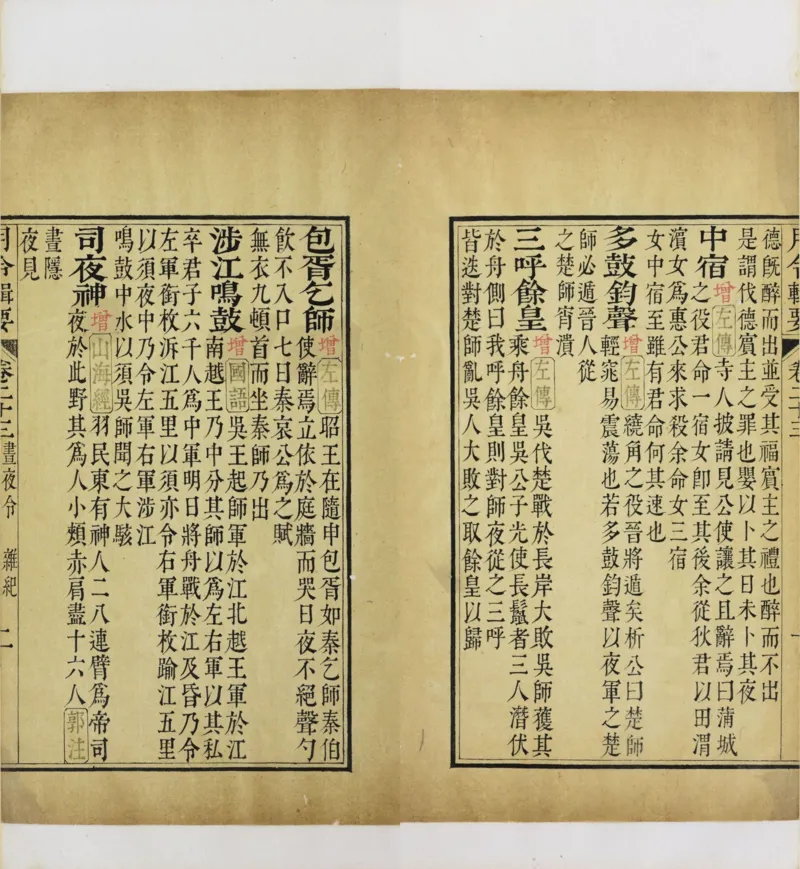 月令輯要 卷二十三 一
德旣醉而出並受其福賓主之禮也醉而不出
是謂伐德賓主之罪也嬰以卜其日未卜其夜
中宿 增 左傳 寺人披請見公使讓之且辭焉曰蒲城
之役君命一宿女卽至其後余從狄君以田渭
濵女爲惠公來求殺余命女三宿
女中宿至雖有君命何其速也
多鼓鈞聲 增 左傳 繞角之役晉將遁矣析公曰楚師
輕窕易震蕩也若多鼓鈞聲以夜軍之楚
師必遁晉人從
之楚師宵潰
三呼餘皇 增 左傳 吳伐楚戰於長岸大敗吳師獲其
乘舟餘皇吳公子光使長鬛者三人潛伏
於舟側曰我呼餘皇則對師夜從之三呼
皆迭對楚師亂吳人大敗之取餘皇以歸
包胥乞師 增 左傳 昭王在隨申包胥如秦乞師秦伯
使辭焉立依於庭牆而哭日夜不絕聲勺
飲不入口七日秦哀公爲之賦
無衣九頓首而坐秦師乃出
涉江鳴鼓 增 國語 吳王起師軍於江北越王軍於江
南越王乃中分其師以爲左右軍以其私
卒君子六千人爲中軍明日將舟戰於江及昏乃令
左軍銜枚泝江五里以須亦令右軍銜枚踰江五里
以須夜中乃令左軍右軍涉江
鳴鼓中水以須吳師聞之大駭
司夜神 增 山海經 羽民東有神人二八連臂爲帝司
夜於此野其爲人小頰赤肩盡十六人 郭注
晝隱
夜見
月令輯要 卷二十三 晝夜令 雜紀 二